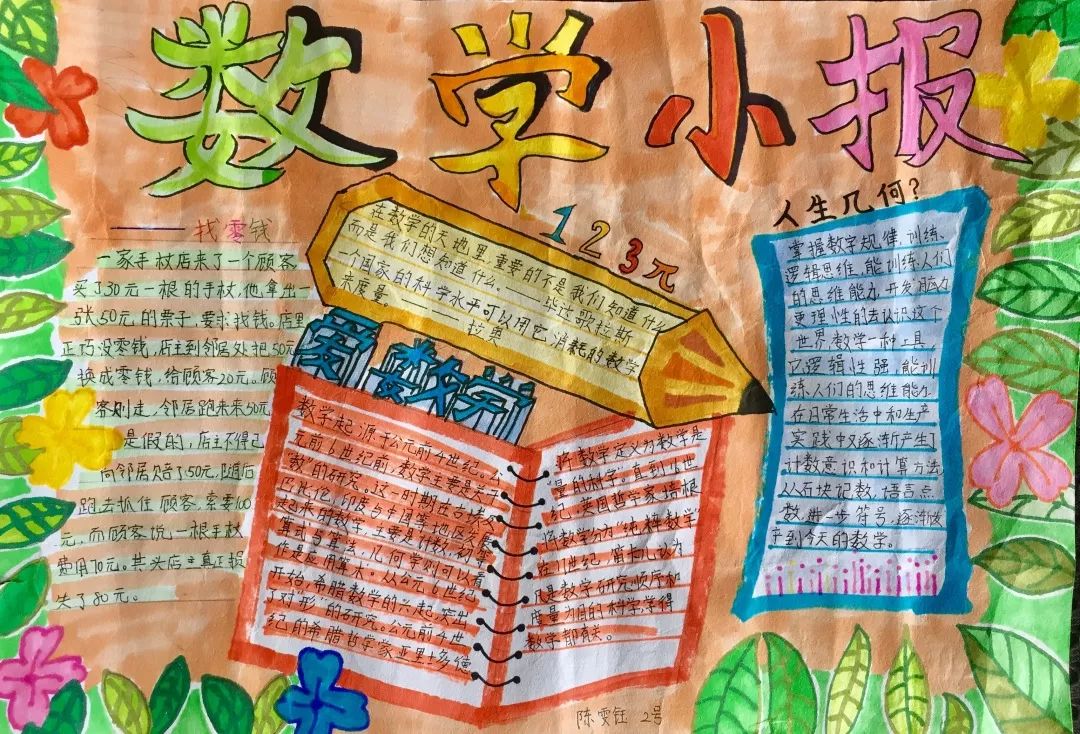 数学小报
找零钱
一家手杖店来了一个顾客
买了30元一根的手杖,他拿出一
张50元的票子,要求找钱。店里
正巧没零钱,店主到邻居处把50元
换成零钱,给顾客20元。顾
客刚走,邻居跑来来50元
是假的,店主不得已
向邻居赔了50元,随后
跑去抓住 顾客,索要100
元,而顾客说,一根手杖
费用70元。其头店主真正损
失了80元。
1 2 3 π
在数学的天地里,重要的不是我们知道什么
而是我们想知道什么。——毕达歌拉斯
一个国家的科学水平可以用它消耗的数学
来度量。————拉奥
爱数学
数学起源于公元前4世纪。公
元前6世纪前,数学主要是关于
数的研究。这一时期在古埃及
巴比伦、印度与中国等地区发展
起来的数学,主要是计数,初等
算式与算法,几何学则可以看
作是应用算术。从公元6世纪
开始,希腊数学的兴起,突出
了对形的研究。公元前4世
纪的希腊哲学家亚里士多德
将数学定义为数学是
量的科学。直到16世
纪,英国哲学家培根
将数学分为"纯粹数学
在17世纪,笛卡儿认为
凡是数学研究顺序和
度量为目的科学学得
数学都有关。
人生几何?
掌握数字规律,训练
逻辑思维,能训练人们
的思维能力,开发脑力
更理性的去认识这个
世界,数学一种工具,
它逻辑性强,能训
练人们的思维能力
在日常生活中和生产
实践中又逐渐产生了
计数意识和计算方法
从石块记数,语言点
数进一步符号,逐渐发
于到今天的数学。
陈雯钰 2号